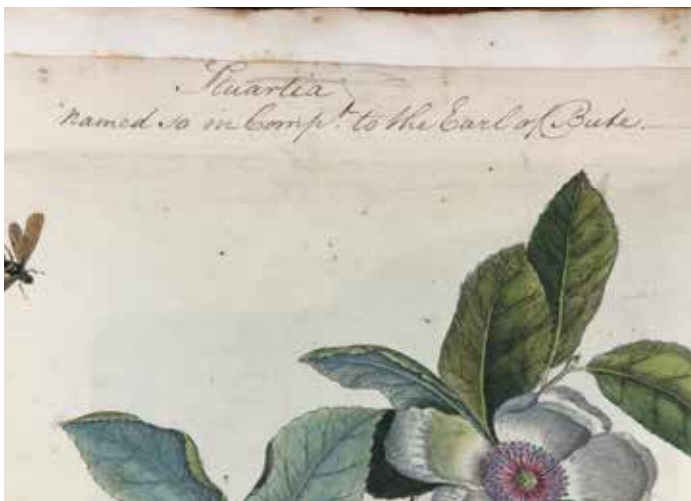 Stuartia
named so in Comp.t to the Earl of Bute.